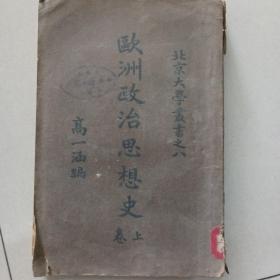 北京大學叢書之八
歐洲政治思想史
上卷
高一涵編